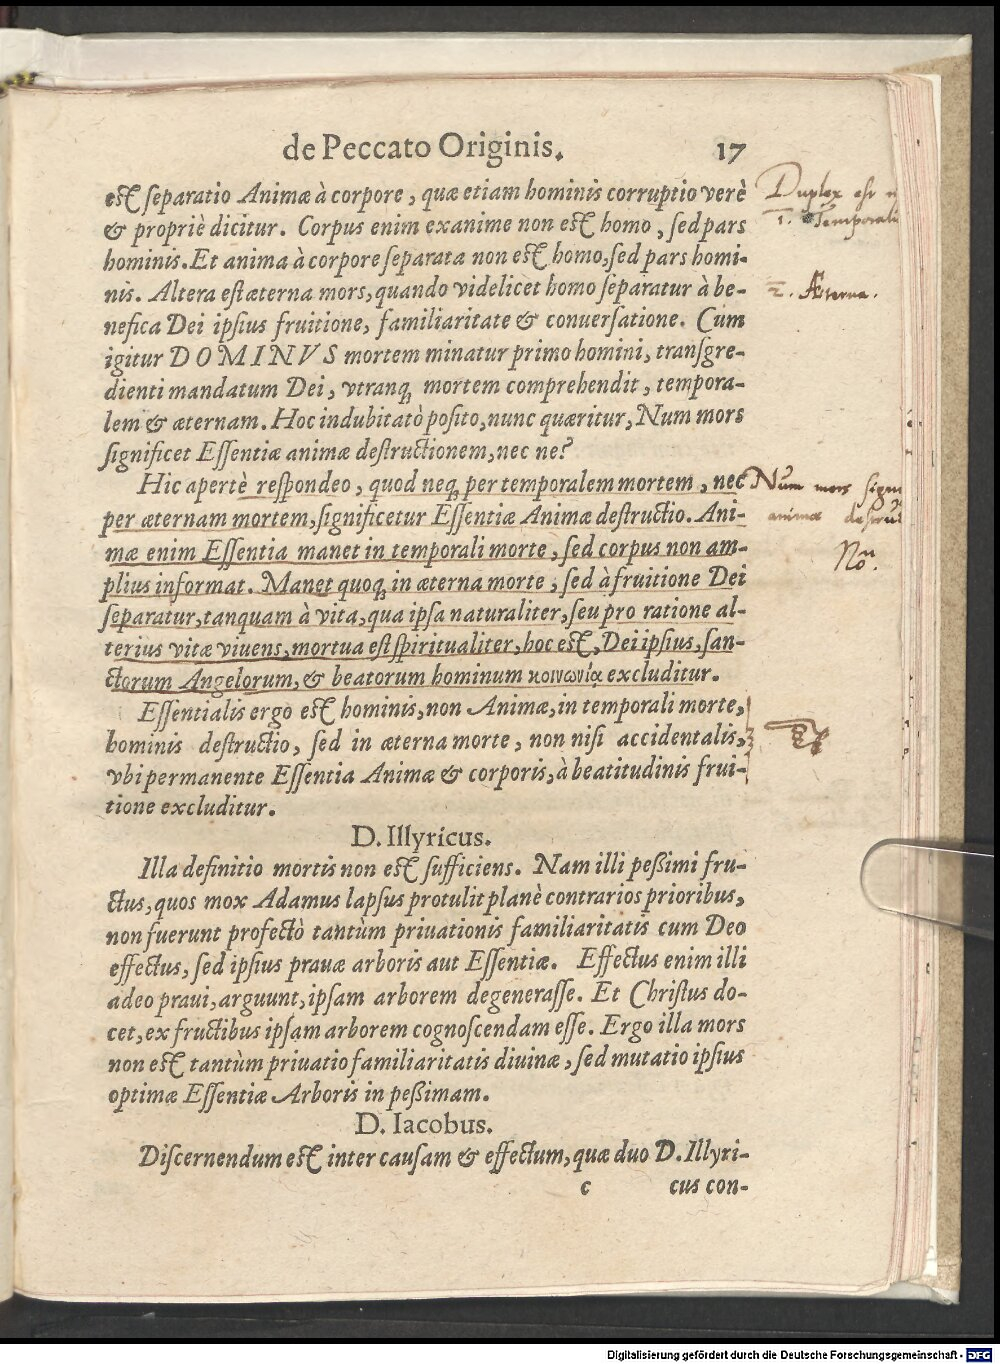 de Peccato Originis. 17
est separatio Animæ à corpore, quæ etiam hominis corruptio verè
& propriè dicitur. Corpus enim exanime non est homo, sed pars
hominis. Et anima à corpore separata non est homo, sed pars homi-
nis. Altera est æterna mors, quando videlicet homo separatur à be-
nefica Dei ipsius fruitione, familiaritate & conuersatione. Cùm
igitur DOMINVS mortem minatur primo homini, transgre-
dienti mandatum Dei, vtranq́; mortem comprehendit, tempora-
lem & æternam. Hoc indubitatò posito, nunc quæritur, Num mors
significet Essentiæ animæ destructionem, nec ne?
Hic apertè respondeo, quod neq; per temporalem mortem, nec
per æternam mortem, significetur Essentiæ Animæ destructio. Ani-
mæ enim Essentia manet in temporali morte, sed corpus non am-
plius informat. Manet quoq; in æterna morte, sed à fruitione Dei
separatur, tanquam à vita, qua ipsa naturaliter, seu pro ratione al-
terius vitæ viuens, mortua est spiritualiter, hoc est, Dei ipsius, san-
ctorum Angelorum, & beatorum hominum κοινωνίᾳ excluditur.
Essentialis ergo est hominis, non Animæ, in temporali morte,
hominis destructio, sed in æterna morte, non nisi accidentalis,
vbi permanente Essentia Animæ & corporis, à beatitudinis frui-
tione excluditur.
D. Illyricus.
Illa definitio mortis non est sufficiens. Nam illi peßimi fru-
ctus, quos mox Adamus lapsus protulit planè contrarios prioribus,
non fuerunt profectò tantùm priuationis familiaritatis cum Deo
effectus, sed ipsius prauæ arboris aut Essentiæ. Effectus enim illi
adeo praui, arguunt, ipsam arborem degenerasse. Et Christus do-
cet, ex fructibus ipsam arborem cognoscendam esse. Ergo illa mors
non est tantùm priuatio familiaritatis diuinæ, sed mutatio ipsius
optimæ Essentiæ Arboris in peßimam.
D. Iacobus.
Discernendum est inter causam & effectum, quæ duo D. Illyri-
c cus con-
Duplex est
1. Temporali
2. Æterna.
Num mors
animæ
No.
Digitalisierung gefördert durch die Deutsche Forschungsgemeinschaft - DFG